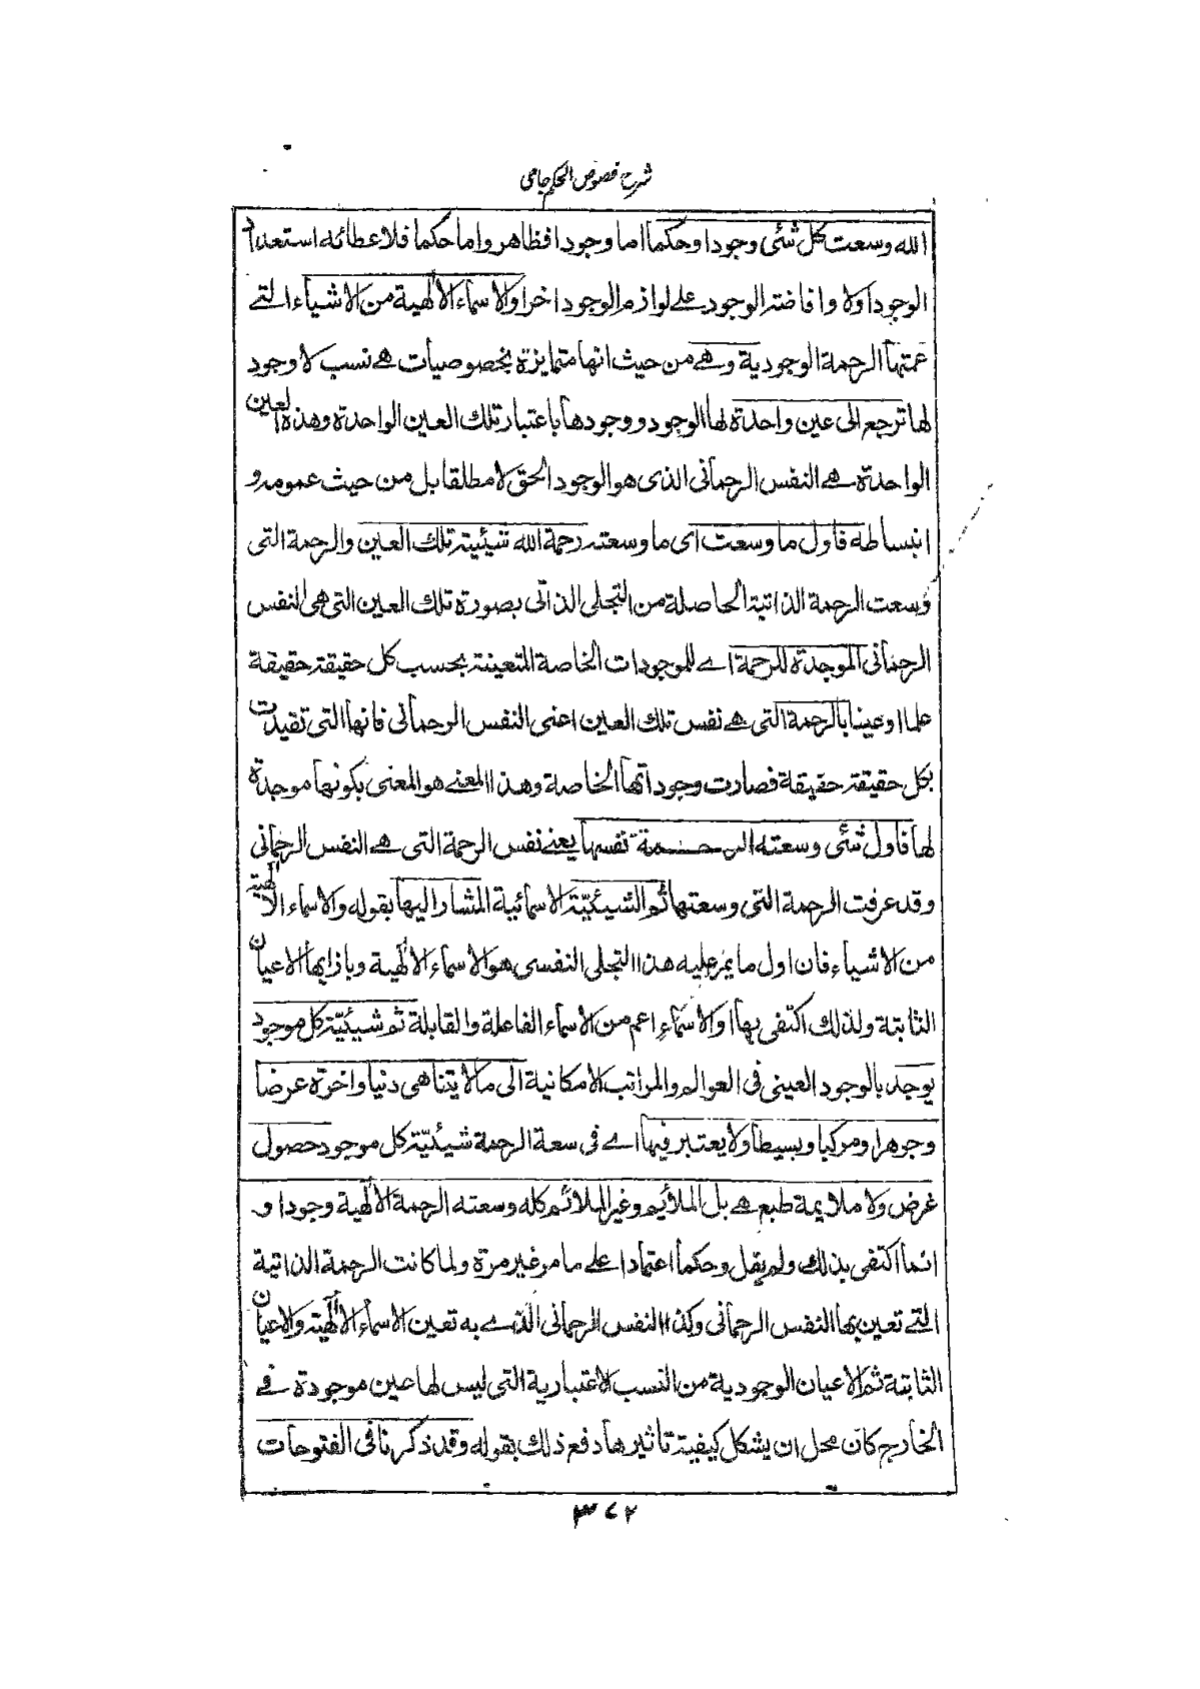 شرح فصوص الحكم جامى
الله وسعت كل شئى وجودا وحكما اما وجودا فظاهر واما حكما فلاعطائه استعداد
الوجود اولا وافاضته الوجود على لوازم الوجود اخرا والاسماء الالهية من الاشياء التے
عمتها الرحمة الوجودية وهے من حيث انها متمايزة بخصوصيات هے نسب لا وجود
لها ترجع الى عين واحدة لها الوجود ووجودها باعتبار تلك العين الواحدة وهذه العين
الواحدة هے النفس الرحمانى الذى هو الوجود الحق لا مطلقا بل من حيث عمومه و
انبساطه فاول ما وسعت اى ما وسعته رحمة الله شيئية تلك العين والرحمة التى
وسعت الرحمة الذاتية الحاصلة من التجلى الذاتى بصورة تلك العين التى هى النفس
الرحمانى الموجدة للرحمة اے للموجودات الخاصة المتعينة بحسب كل حقيقة حقيقة
علما او عينا بالرحمة التى هے نفس تلك العين اعنى النفس الرحمانى فانها التى تقيدت
بكل حقيقة حقيقة فصارت وجوداتها الخاصة وهذا المعنے هو المعنى بكونها موجدة
لها فاول شئى وسعته الرحمة نفسها يعنے نفس الرحمة التى هے النفس الرحمانى
وقد عرفت الرحمة التى وسعتها ثم الشيئيّة الاسمائية المشار اليها بقوله والاسماء الالهية
من الاشياء فان اول ما يمر عليه هذا التجلى النفسى هو الاسماء الالهية وبازايها الاعيان
الثابتة ولذلك اكتفى بها او الاسماء اعم من الاسماء الفاعلة والقابلة ثم شيئيّة كل موجود
يوجد بالوجود العينى فى العوالم والمراتب الامكانية الى ما لا يتناهى دنيا واخرة عرضا
وجوهرا ومركبا وبسيطا ولا يعتبر فيها اے فى سعة الرحمة شيئيّة كل موجود حصول
غرض ولا ملايمة طبع هے بل الملائيم وغير الملائم كله وسعته الرحمة الالهية وجودا و
انما اكتفى بذلك ولم يقل وحكما اعتمادا على ما مر غير مرة ولما كانت الرحمة الذاتية
التے تعين بها النفس الرحمانى وكذا النفس الرحمانى الذے به تعين الاسماء الالهية والاعيان
الثابتة ثم الاعيان الوجودية من النسب الاعتبارية التى ليس لها عين موجودة فے
الخارج كان محل ان يشكل كيفية تاثيرها دفع ذلك بقوله وقد ذكرنا فى الفتوحات
٣٤٢